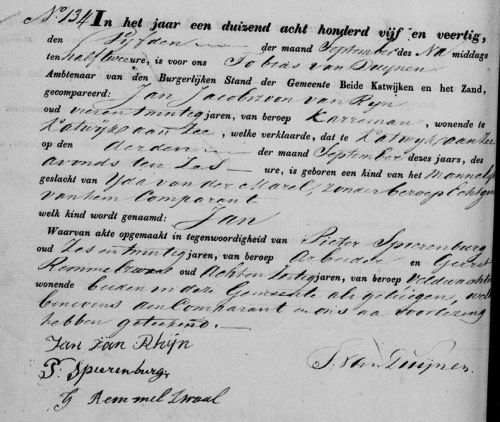 No 134 In het jaar een duizend acht honderd vijf en veertig,
den Vijfden der maand September des Na middags
ten half twee ure, is voor ons Tobias van Duijnen
Ambtenaar van den Burgerlijken Stand der Gemeente Beide Katwijken en het Zand,
gecompareerd: Jan Jacobszoon van Rijn
oud vierentwintig jaren, van beroep Karreman, wonende te
Katwijk aan Zee, welke verklaarde, dat te Katwijk aan Zee
op den derden der maand September dezes jaars, des
avonds ten Zes ure, is geboren een kind van het Mannelijk
geslacht van Yda van der Marel, zonder beroep Echtgen
van hem Comparant
welk kind wordt genaamd: Jan
Waarvan akte opgemaakt in tegenwoordigheid van Pieter Spierenburg
oud Zes en twintig jaren, van beroep Arbeider en Gerrit
Remmelzwaal oud Achten jaren, van beroep Veldwachter
wonende beiden in deze Gemeente als getuigen, welke
benevens den Comparant en ons na voorlezing
hebben geteekend.
Jan van Rhijn
P. Spierenburg
T. van Duijnen
G Remmelzwaal